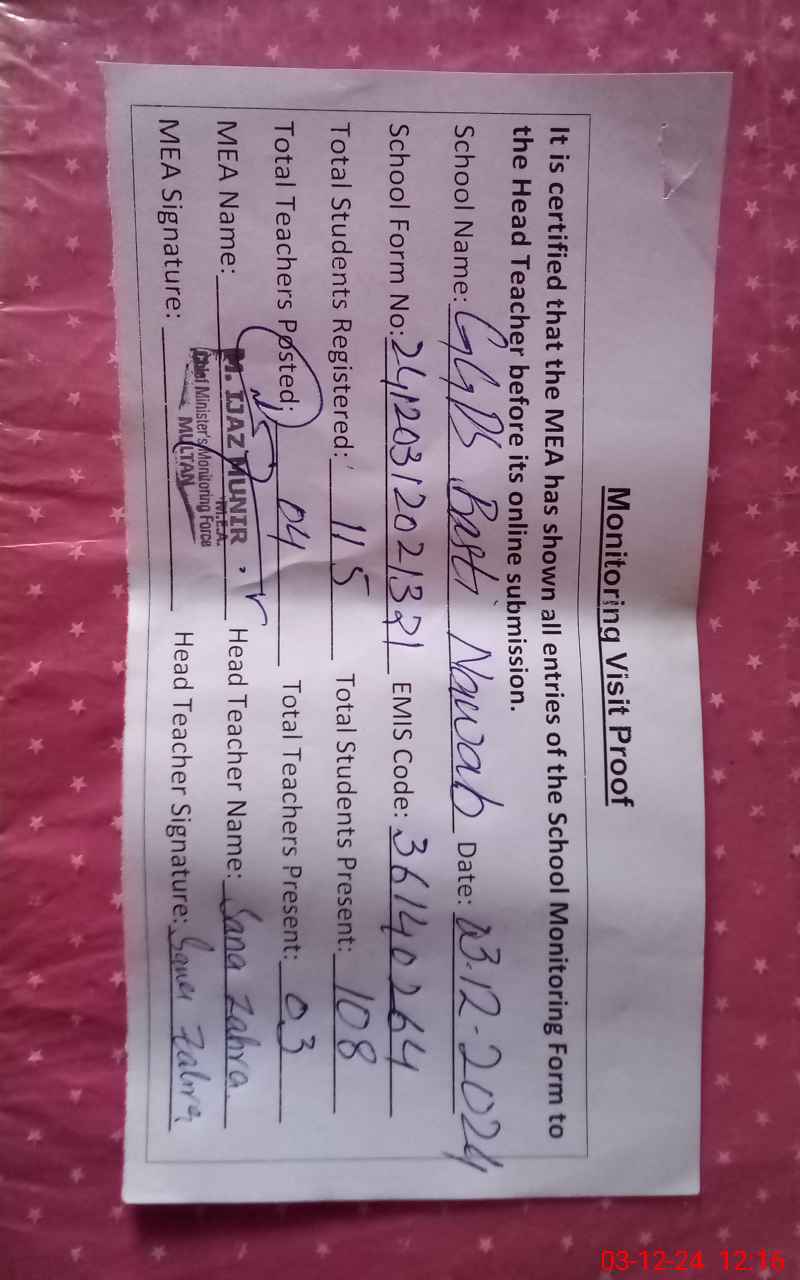 Monitoring Visit Proof
It is certified that the MEA has shown all entries of the School Monitoring Form to
the Head Teacher before its online submission.
School Name: GGPS Basti Nawab Date: 03-12-2024
School Form No: 24120312021321 EMIS Code: 36140264
Total Students Registered: 115 Total Students Present: 108
Total Teachers Posted: 04 Total Teachers Present: 03
MEA Name: M. IJAZ MUNIR Head Teacher Name: Sana Zahra
M.E.A.
Chief Minister's Monitoring Force
MULTAN
MEA Signature: Head Teacher Signature: Sana Zahra
03-12-24 12:16